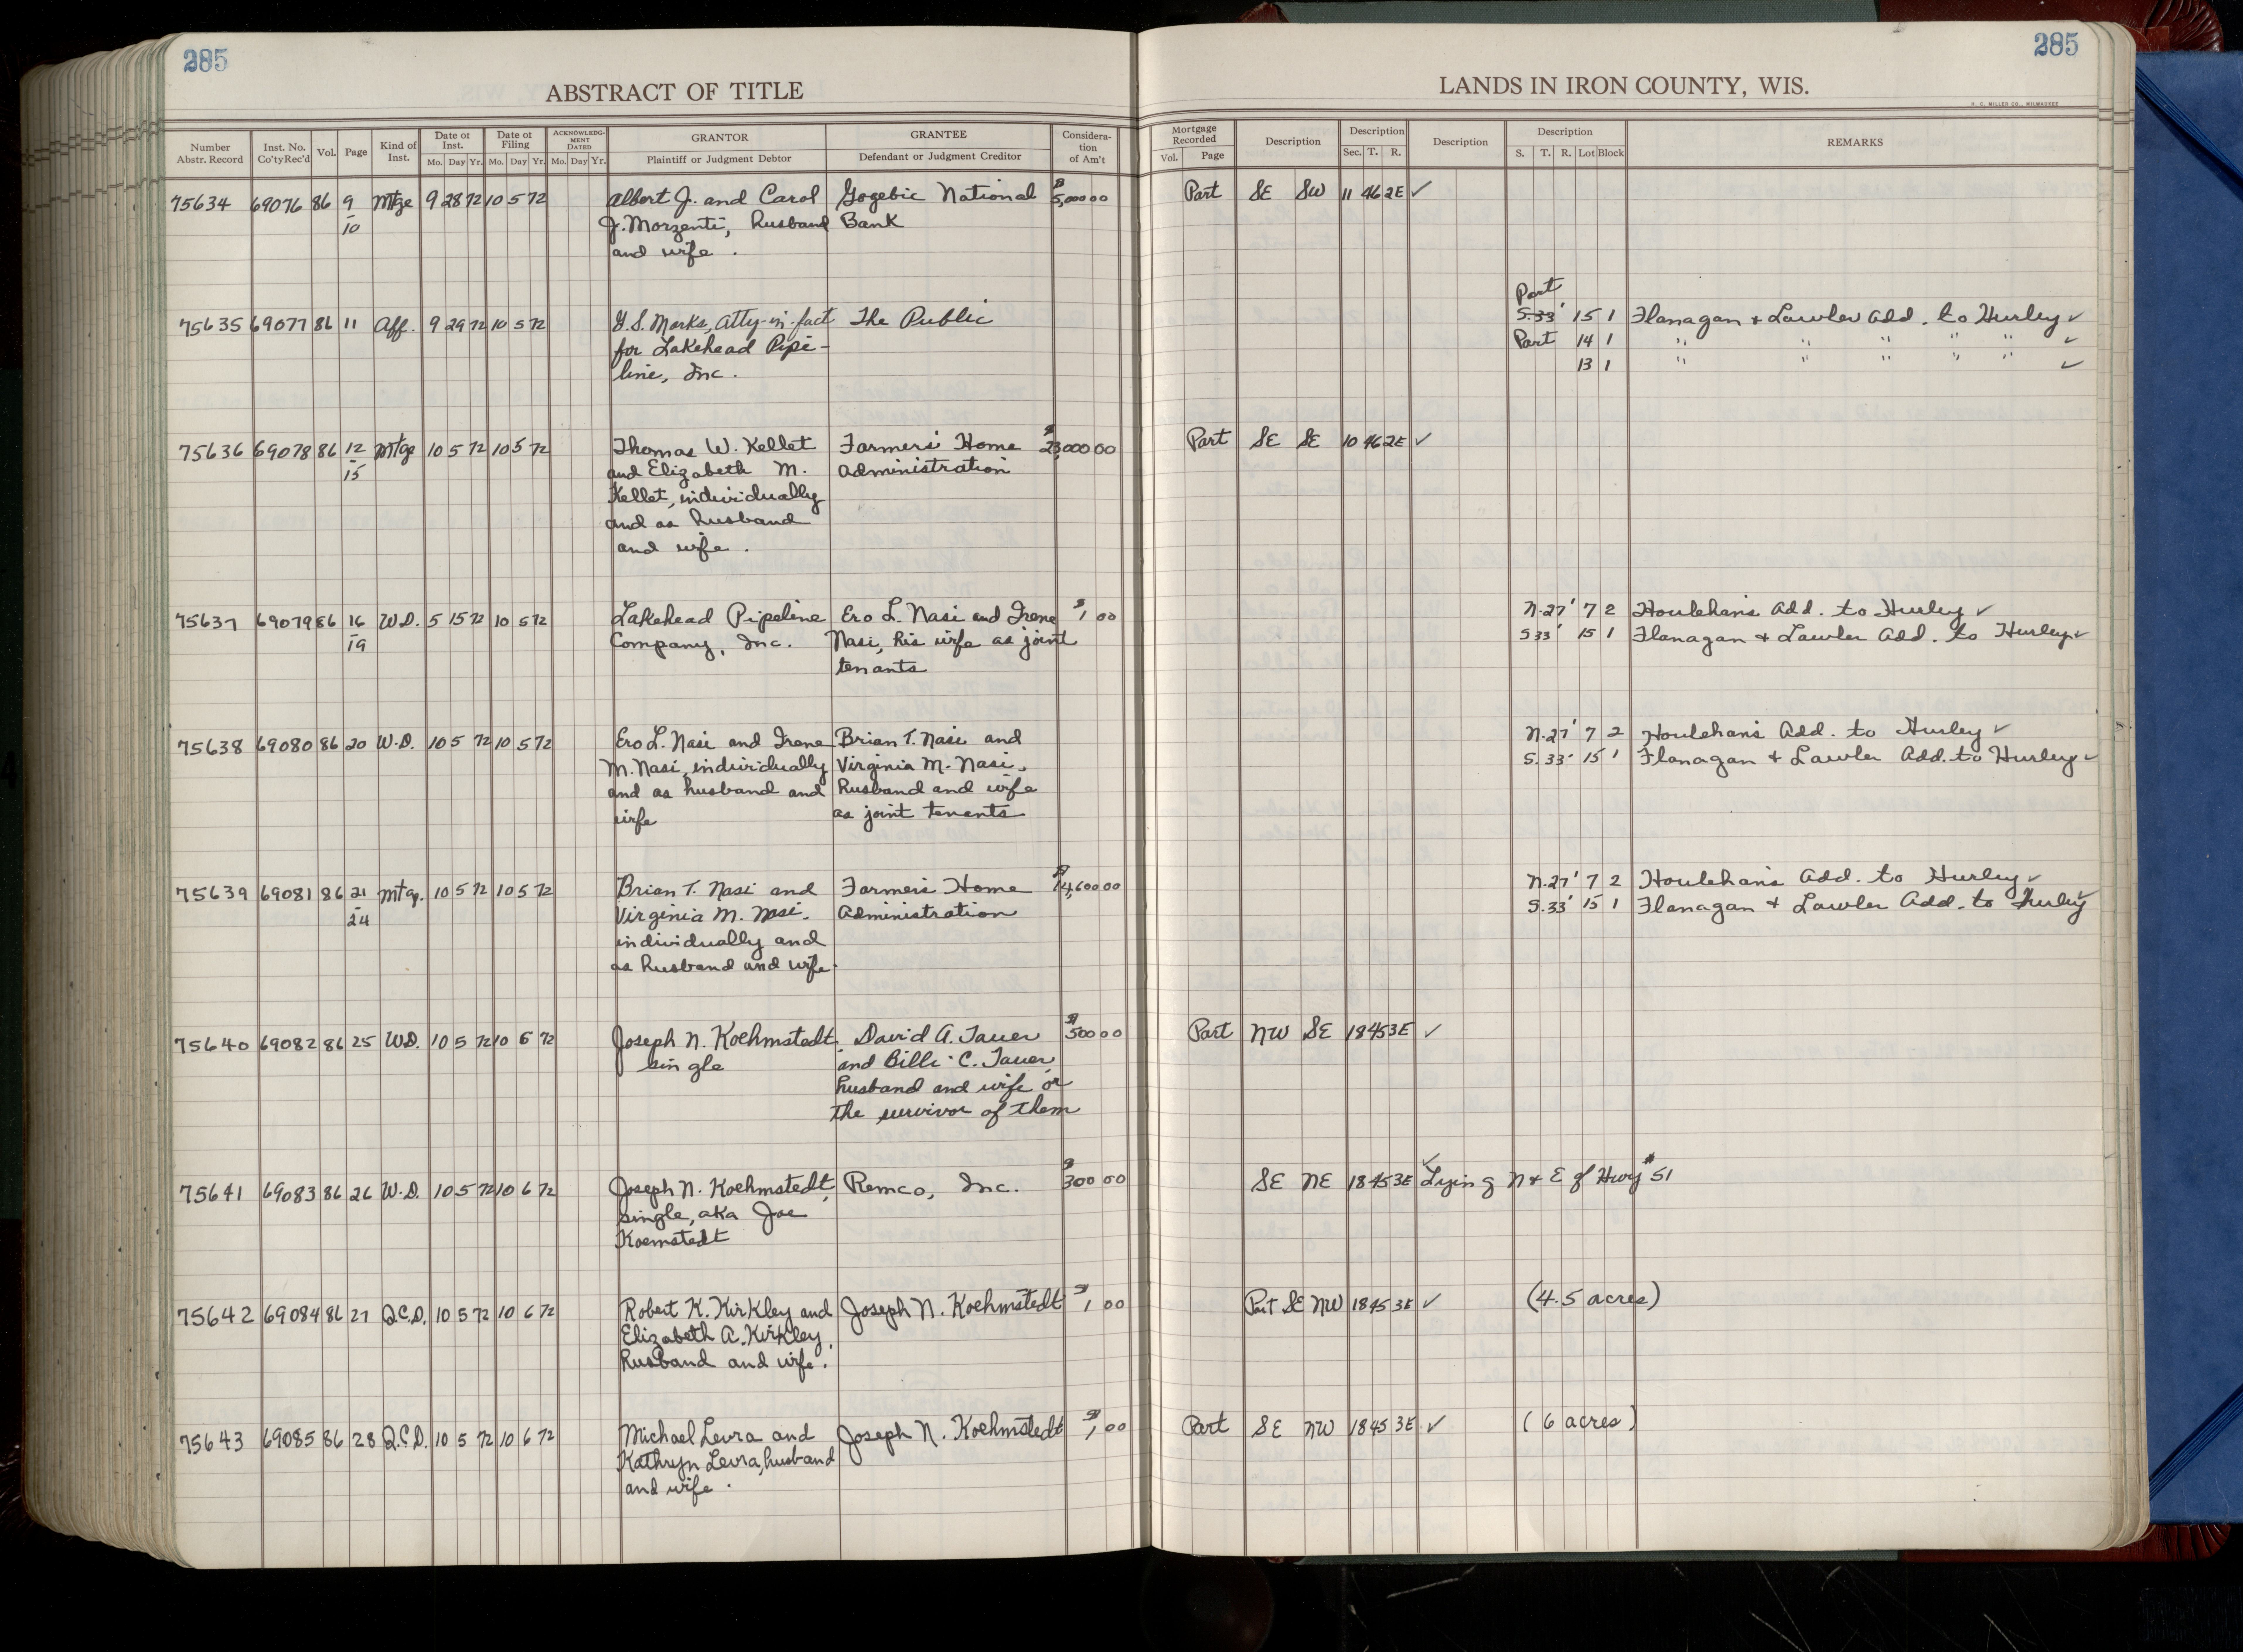 285
285
ABSTRACT OF TITLE
LANDS IN IRON COUNTY, WIS.
H. C. MILLER CO., MILWAUKEE
Number Abstr. Record Inst. No. Co'ty Rec'd Vol. Page Kind of Inst. Date of Inst. Mo. Day Yr. Date of Filing Mo. Day Yr. ACKNOWLEDGMENT DATED Mo. Day Yr. GRANTOR Plaintiff or Judgment Debtor GRANTEE Defendant or Judgment Creditor Consideration of Am't Mortgage Recorded Vol. Page Description Description Sec. T. R. Description Description S. T. R. Lot Block REMARKS
75634 69076 86 9 Mtge 9 28 72 10 5 72 Albert J. and Carol Gogebic National $5,000 00 Part SE SW 11 46 2E ✓
10 J. Morzenti, husband Bank
and wife.
Part
75635 69077 86 11 Aff. 9 29 72 10 5 72 G.S. Marks, Atty-in-fact The Public S.33' 15 1 Flanagan & Lawler Add. to Hurley ✓
for Lakehead Pipe- Part 14 1 " " " " " ✓
line, Inc. 13 1 " " " " " ✓
75636 69078 86 12 Mtge 10 5 72 10 5 72 Thomas W. Kellet Farmers Home $23,000 00 Part SE SE 10 46 2E ✓
15 and Elizabeth M. Administration
Kellet, individually
and as husband
and wife.
75637 69079 86 16 W.D. 5 15 72 10 5 72 Lakehead Pipeline Ero L. Nasi and Irene $1 00 N.27' 7 2 Houlehan's Add. to Hurley ✓
19 Company, Inc. Nasi, his wife as joint S 33' 15 1 Flanagan & Lawler Add. to Hurley ✓
tenants
75638 69080 86 20 W.D. 10 5 72 10 5 72 Ero L. Nasi and Irene Brian T. Nasi and N.27' 7 2 Houlehan's Add. to Hurley ✓
M. Nasi, individually Virginia M. Nasi, S. 33' 15 1 Flanagan & Lawler Add. to Hurley ✓
and as husband and husband and wife
wife as joint tenants
75639 69081 86 21 Mtg. 10 5 72 10 5 72 Brian T. Nasi and Farmers Home $14,600 00 N.27' 7 2 Houlehan's Add. to Hurley ✓
24 Virginia M. Nasi, Administration S.33' 15 1 Flanagan & Lawler Add. to Hurley ✓
individually and
as husband and wife.
75640 69082 86 25 W.D. 10 5 72 10 6 72 Joseph N. Koehmstedt, David A. Tauer $500 00 Part NW SE 18 45 3E ✓
single and Bille C. Tauer,
husband and wife or
the survivor of them
75641 69083 86 26 W.D. 10 5 72 10 6 72 Joseph N. Koehmstedt, Remco, Inc. $300 00 SE NE 18 45 3E ✓ Lying N & E of Hwy # 51
single, aka Joe
Koemstedt
75642 69084 86 27 Q.C.D. 10 5 72 10 6 72 Robert K. Kirkley and Joseph N. Koehmstedt $1 00 Part SE NW 18 45 3E ✓ (4.5 acres)
Elizabeth A. Kirkley,
husband and wife.
75643 69085 86 28 Q.C.D. 10 5 72 10 6 72 Michael Levra and Joseph N. Koehmstedt $1 00 Part SE NW 18 45 3E ✓ (6 acres)
Kathryn Levra, husband
and wife.